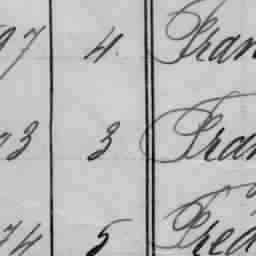 97 4. Fran
73 3 Fran
74 5 Fred